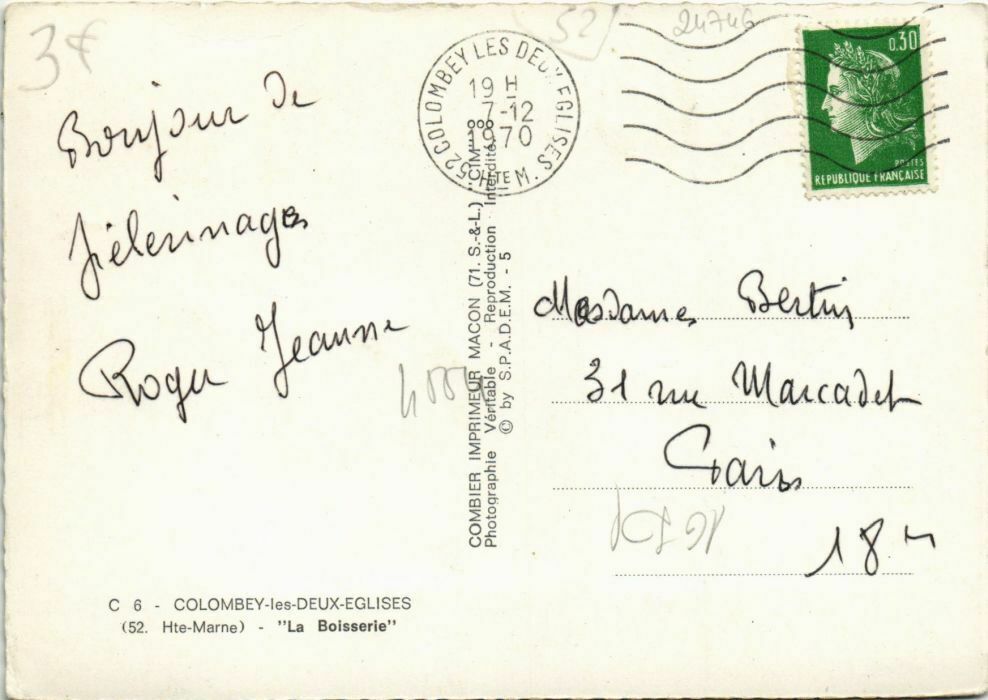 3 €
52
24746
Bonjour de
pélerinages
Roger Jeanne
52 COLOMBEY LES DEUX EGLISES
19 H
7-12
1970
HTE M.
0,30
POSTES
REPUBLIQUE FRANÇAISE
COMBIER IMPRIMEUR MACON (71. S.-&-L.) "CIM"
Photographie Véritable - Reproduction Interdite
© by S.P.A.D.E.M. - 5
Mesdames Bertin
31 rue Marcadet
Paris
18 e
C 6 - COLOMBEY-les-DEUX-EGLISES
(52. Hte-Marne) - "La Boisserie"